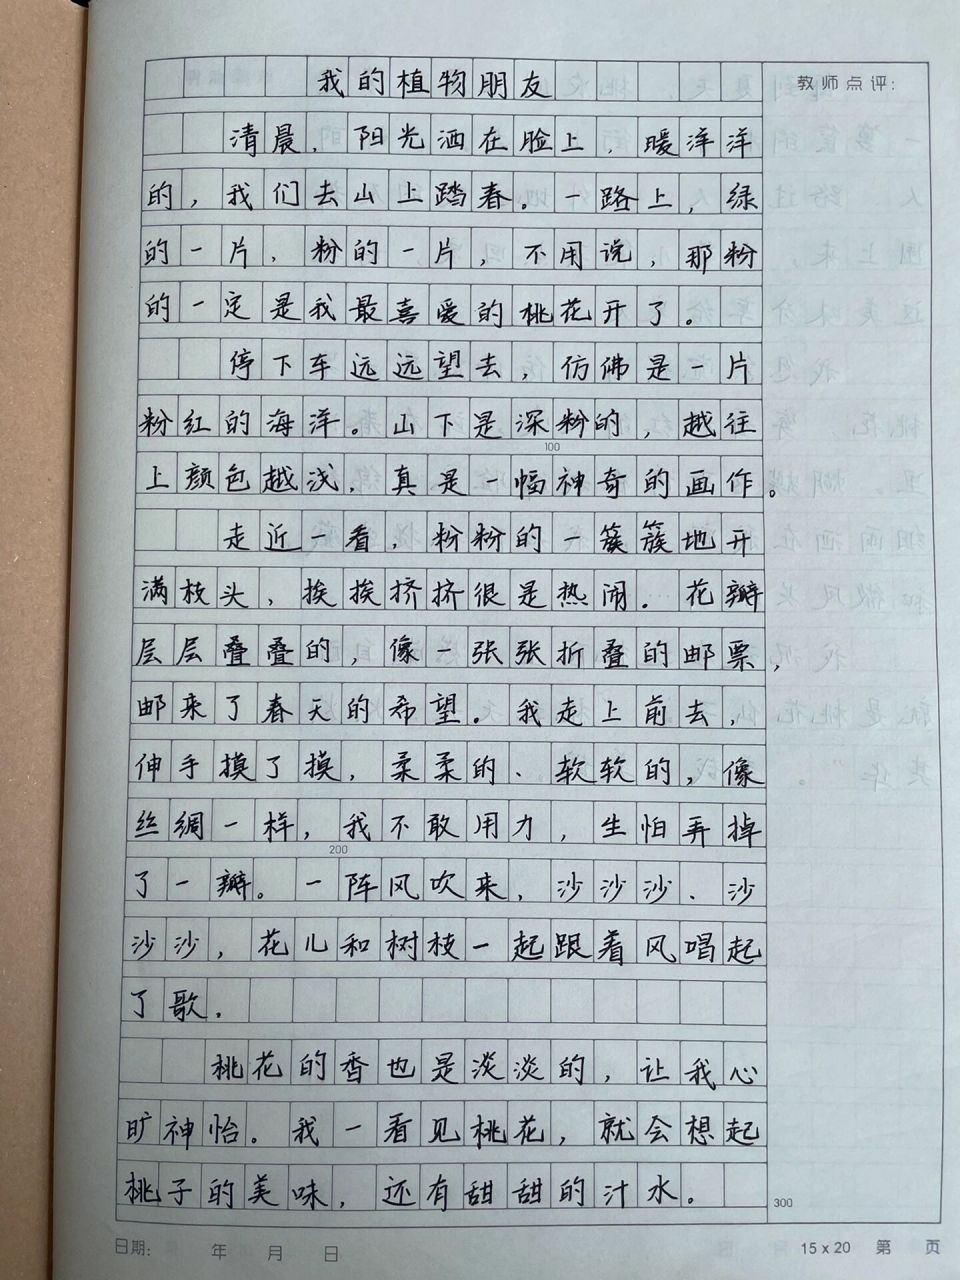 我的植物朋友
教师点评:
清晨，阳光洒在脸上，暖洋洋
的，我们去山上踏春。一路上，绿
的一片，粉的一片，不用说，那粉
的一定是我最喜爱的桃花开了。
停下车远远望去，仿佛是一片
粉红的海洋。山下是深粉的，越往
100
上颜色越浅，真是一幅神奇的画作。
走近一看，粉粉的一簇簇地开
满枝头，挨挨挤挤很是热闹。花瓣
层层叠叠的，像一张张折叠的邮票，
邮来了春天的希望。我走上前去，
伸手摸了摸，柔柔的、软软的，像
丝绸一样，我不敢用力，生怕弄掉
200
了一瓣。一阵风吹来，沙沙沙、沙
沙沙，花儿和树枝一起跟着风唱起
了歌。
桃花的香也是淡淡的，让我心
旷神怡。我一看见桃花，就会想起
桃子的美味，还有甜甜的汁水。
300
日期: 年 月 日
15 x 20 第 页